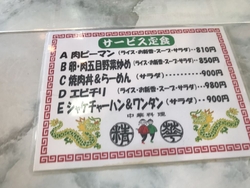 サービス定食
A 肉ピーマン(ライス・お新香・スープ・サラダ)…810円
B 卵・肉五目野菜炒め(ライス・お新香・スープ・サラダ)…850円
C 焼肉丼&らーめん (サラダ)………900円
D エビチリ (ライス・お新香・スープ・サラダ)…980円
E シャケチャーハン&ワンタン (サラダ)………900円
中華料理